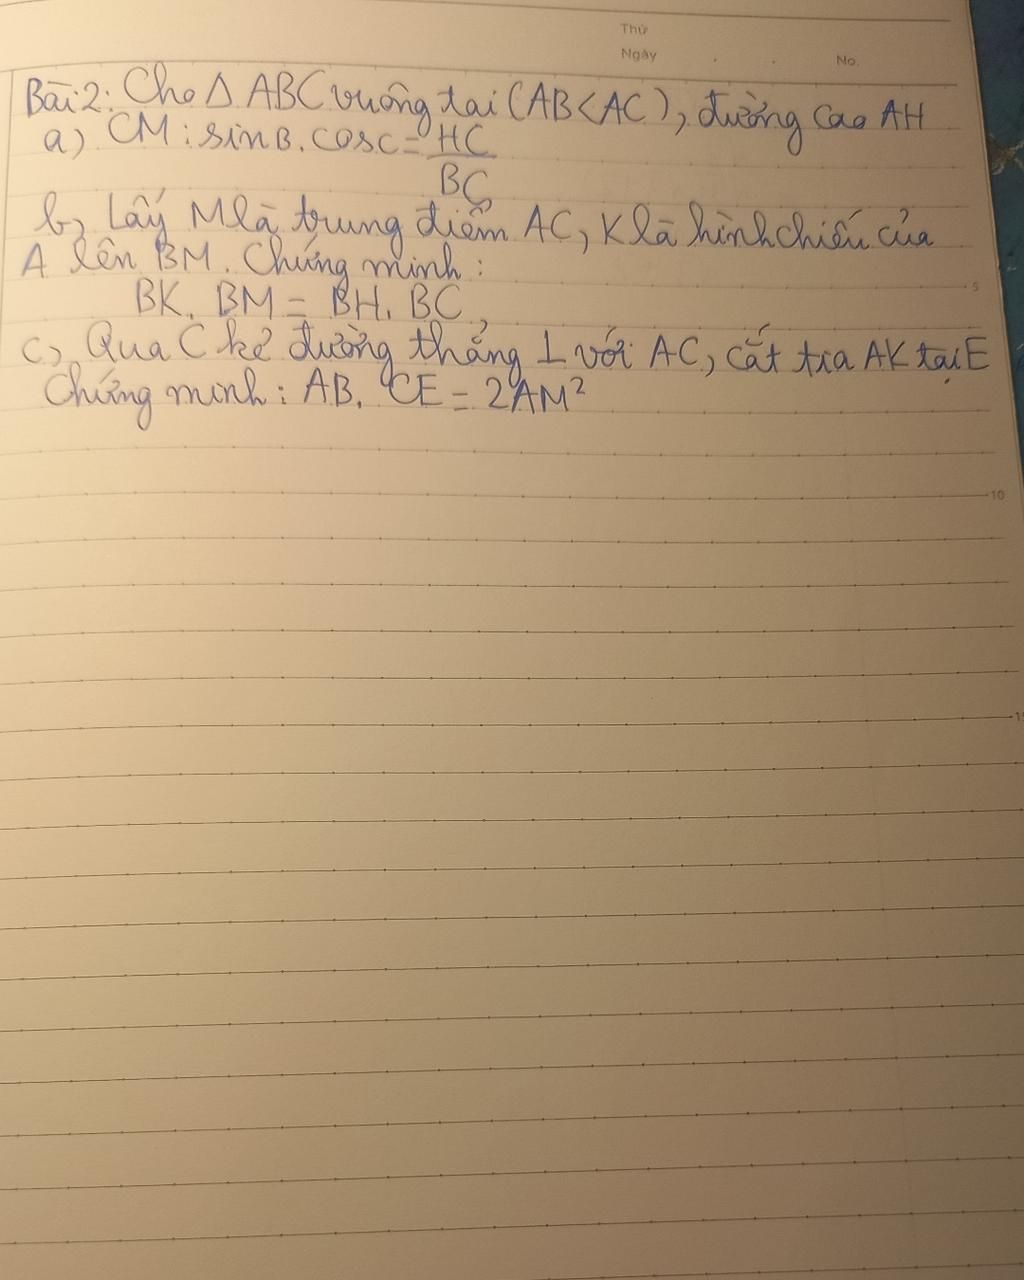 Thứ
Ngày . . No.
Bài 2: Cho Δ ABC vuông tai (AB<AC), đường cao AH
a) CM: sinB. cosC = HC
BC
b, Lấy M là trung điểm AC, K là hình chiếu của
A lên BM. Chứng minh:
5
BK. BM = BH. BC
c, Qua C kẻ đường thẳng ⊥ với AC, cắt tia AK tại E
Chứng minh: AB. CE = 2AM²
10